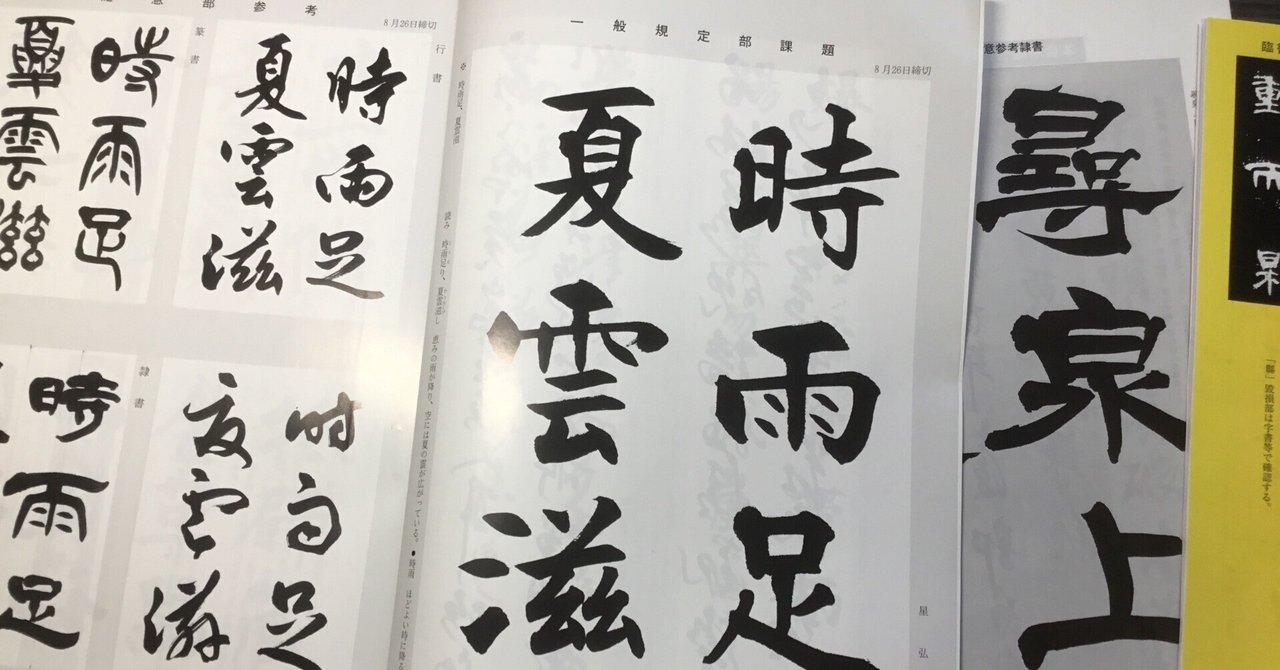 臨書
「縣」毀損部は字書等で確認する。
意参考隷書
尋泉上
一般規定部課題
8月26日締切
時雨足
夏雲滋
星弘
※ 時雨足、夏雲滋
読み 時雨足り、夏雲滋し 恵みの雨が降り、空には夏の雲が広がっている。●時雨 ほどよい時に降る
意部参考
8月26日締切
行書
時雨足
夏雲滋
篆書
時雨足
夏雲滋
時雨足
夏雲滋
隷書
時雨足